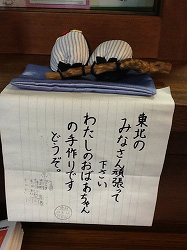 東北の
みなさん頑張って
下さい
わたしのおばあちゃん
の手作りです
どうぞ。